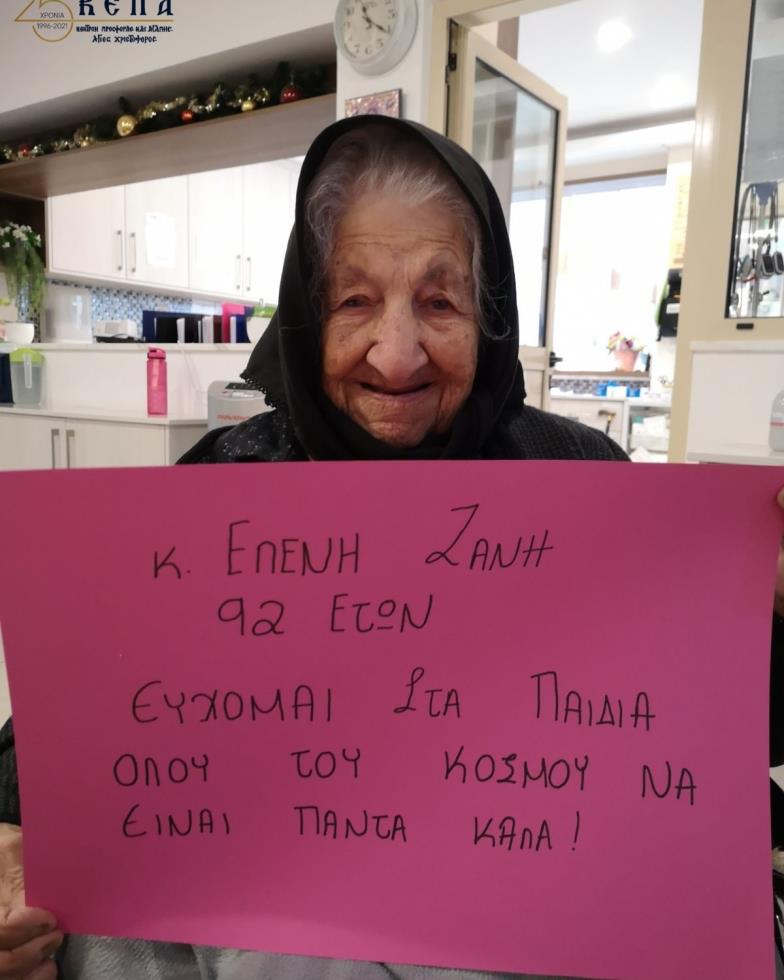 25
ΧΡΟΝΙΑ
1996-2021
ΚΕΠΑ
ΚΕΝΤΡΟΝ ΠΡΟΣΦΟΡΑΣ ΚΑΙ ΑΓΑΠΗΣ
ΑΓΙΟΣ ΧΡΙΣΤΟΦΟΡΟΣ
Κ. ΕΛΕΝΗ ΖΑΝΗ
92 ΕΤΩΝ
ΕΥΧΟΜΑΙ ΣΤΑ ΠΑΙΔΙΑ
ΟΛΟΥ ΤΟΥ ΚΟΣΜΟΥ ΝΑ
ΕΙΝΑΙ ΠΑΝΤΑ ΚΑΛΑ!